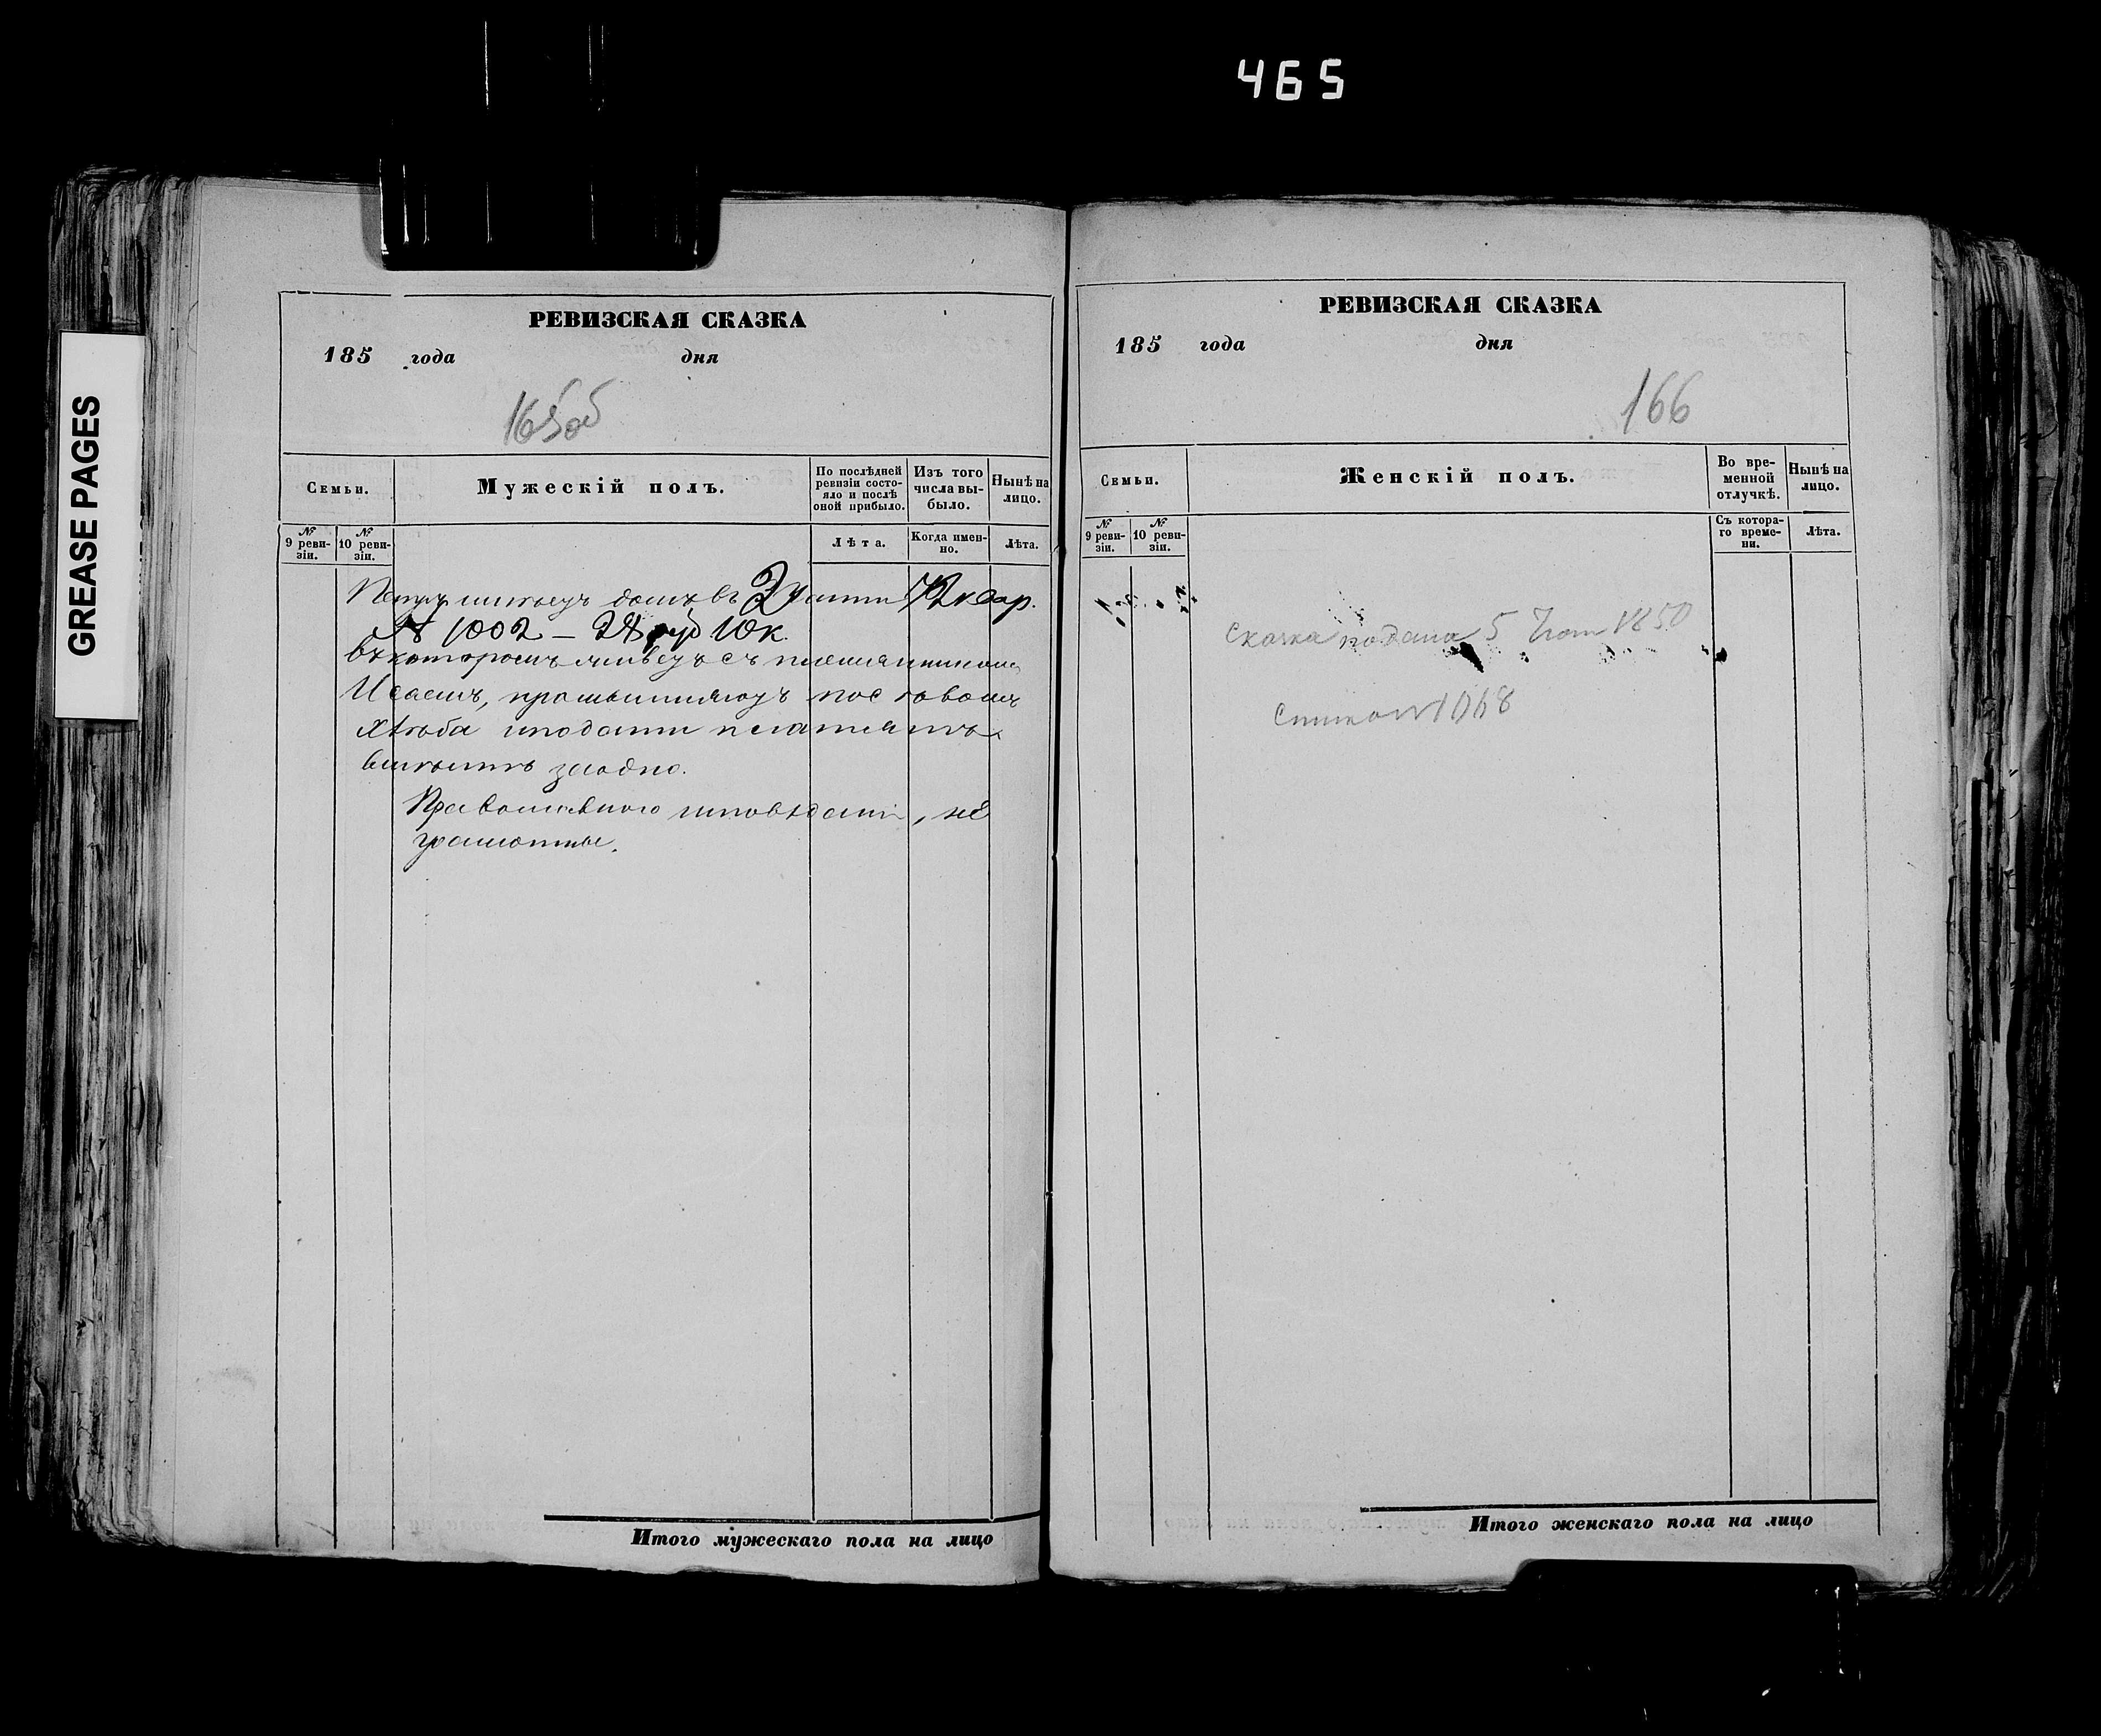 465
GREASE PAGES
РЕВИЗСКАЯ СКАЗКА
185 года дня
165об
Семьи.
Мужескій полъ.
По послѣдней ревизіи состо-
яло и послѣ
оной прибыло.
Изъ того
числа вы-
было.
Нынѣ на
лицо.
№
9 реви-
зіи.
№
10 реви-
зіи.
Лѣта.
Когда имен-
но.
Лѣта.
Петръ имѣетъ домъ въ 2 части 2 квар.
№ 1002 — руб 10 к.
въ которомъ живетъ съ племянникомъ
Исаемъ, промышляютъ поставомъ
хлѣба и подати платятъ
вмѣстѣ заодно.
Православного исповѣданія, не
грамотные.
Итого мужескаго пола на лицо
РЕВИЗСКАЯ СКАЗКА
185 года дня
166
Семьи.
Женскій полъ.
Во вре-
менной
отлучкѣ.
Нынѣ на
лицо.
№
9 реви-
зіи.
№
10 реви-
зіи.
Съ котора-
го време-
ни.
Лѣта.
Сказка подана 5 1850
1068
Итого женскаго пола на лицо